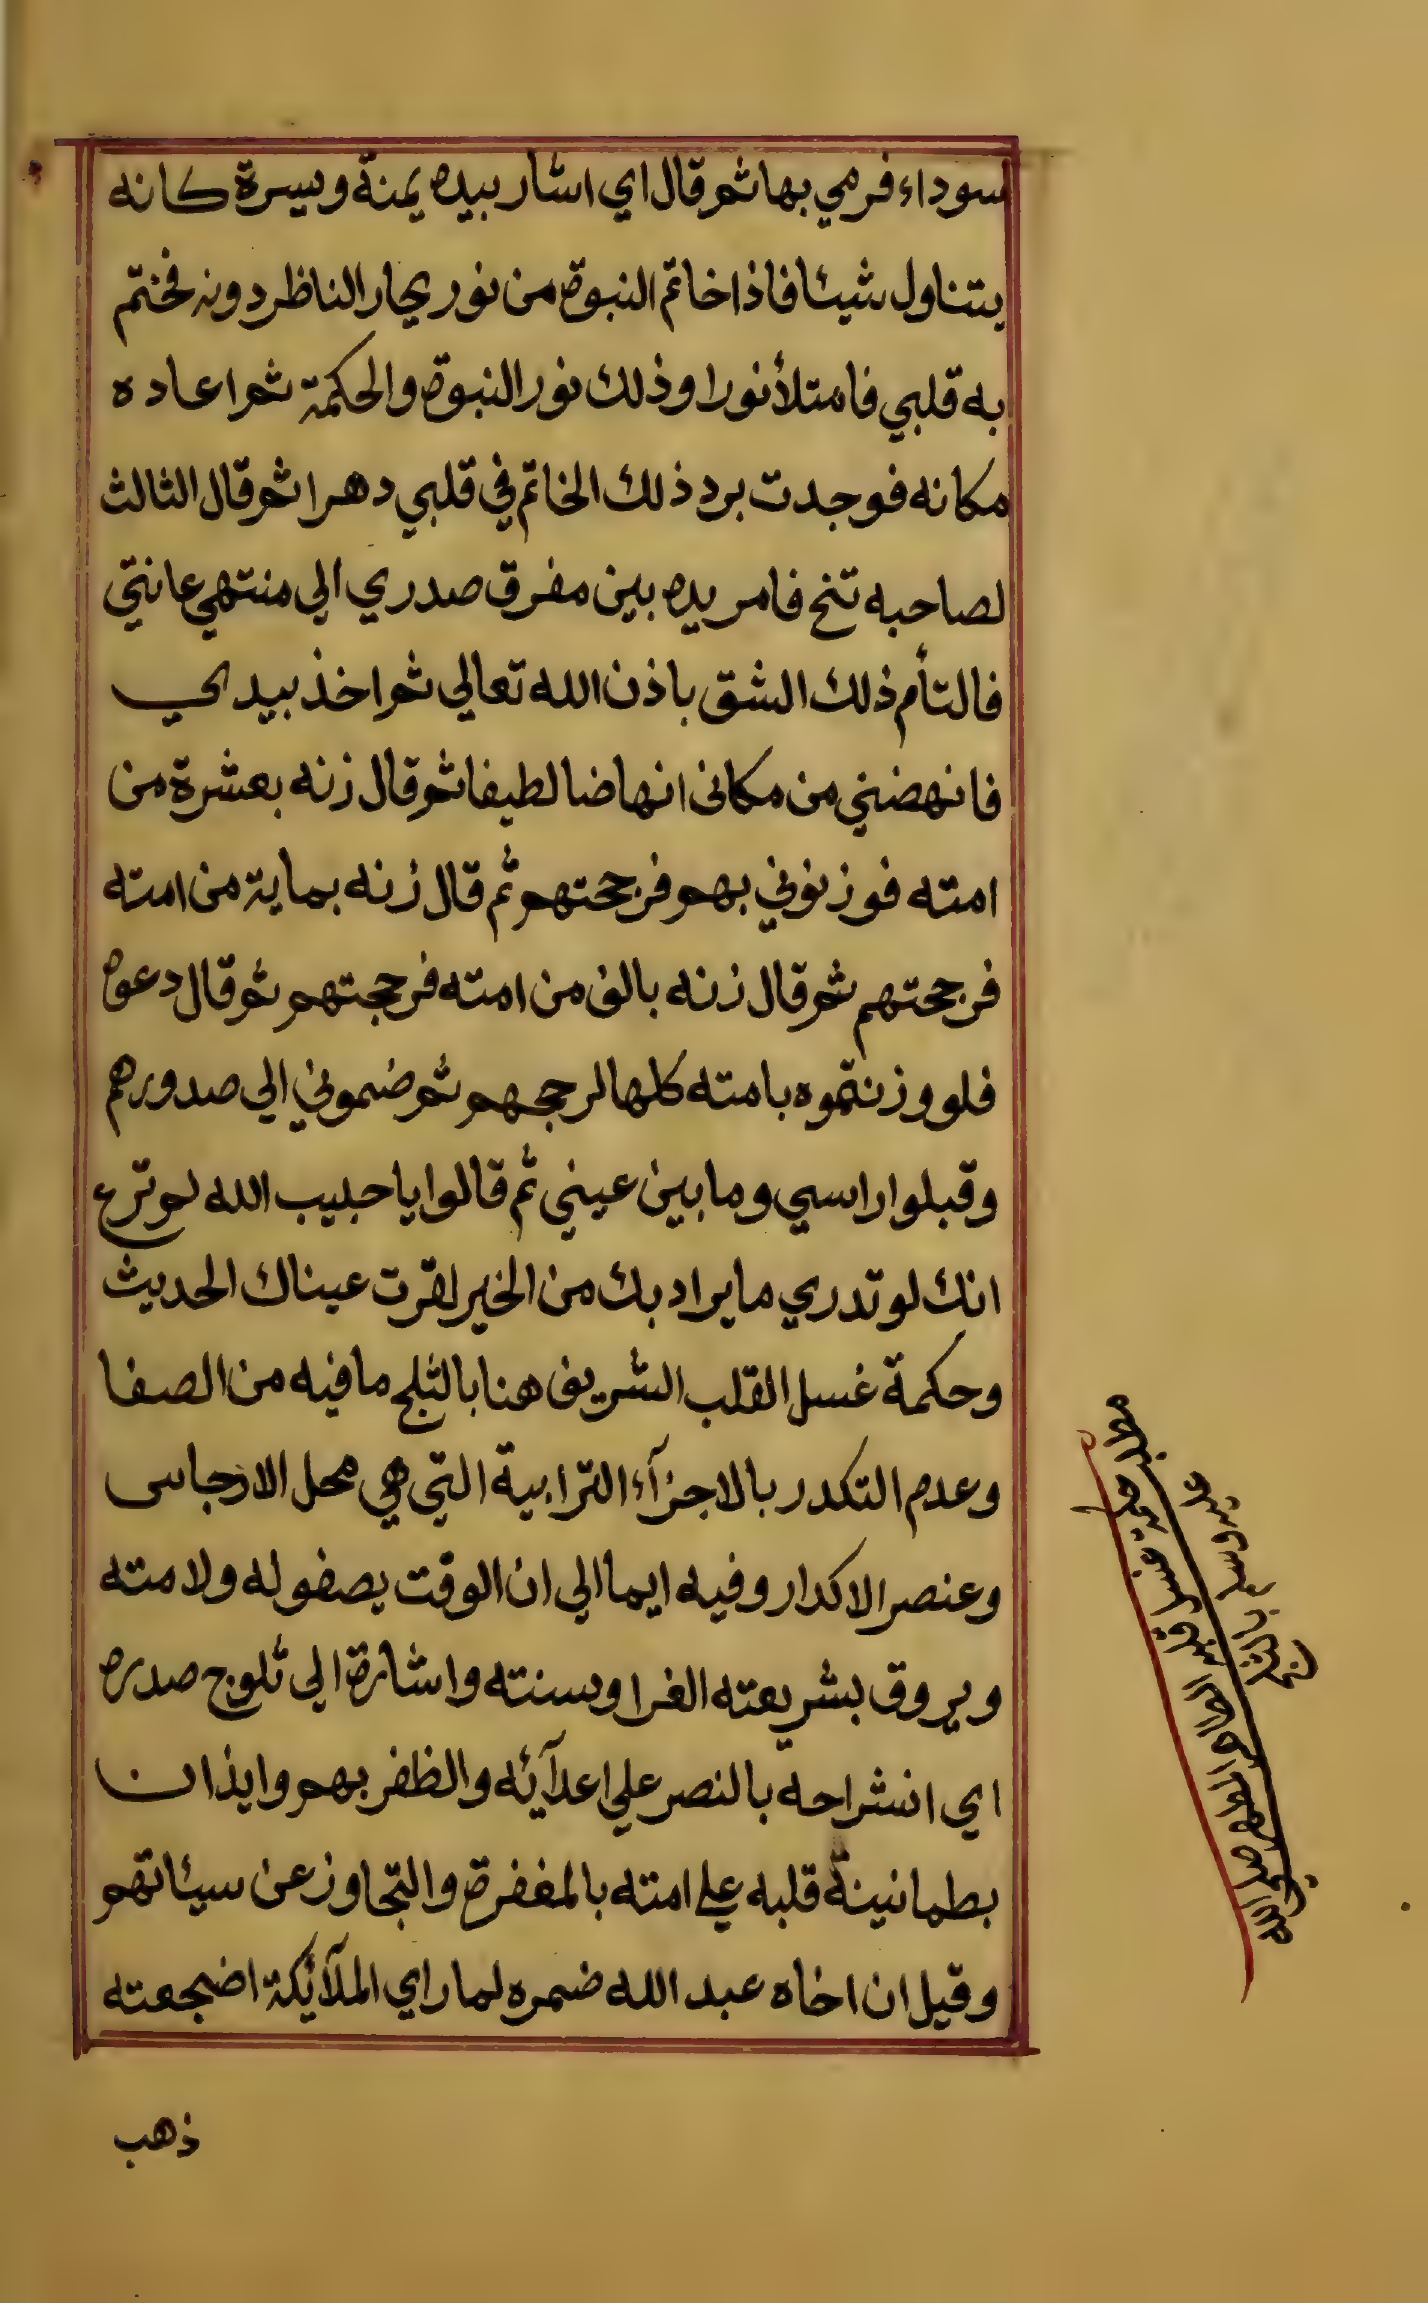 سوداء فرمي بها ثم قال اي اشار بيده يمنة ويسرة كانه
يتناول شيئا فاذا خاتم النبوة من نور يحار الناظر دونه فختم
به قلبي فامتلأ نورا وذلك نور النبوة والحكمة ثم اعاده
مكانه فوجدت برد ذلك الخاتم في قلبي دهرا ثم قال الثالث
لصاحبه تنح فامر يده بين مفرق صدري الي منتهي عانتي
فالتأم ذلك الشق باذن الله تعالي ثم اخذ بيدي
فانهضني من مكاني انهاضا لطيفا ثم قال زنه بعشرة من
امته فوزنوني بهم فرجحتهم ثم قال زنه بماية من امته
فرجحتهم ثم قال زنه بالف من امته فرجحتهم ثم قال دعوه
فلو وزنتموه بامته كلها لرجحهم ثم ضموني الي صدورهم
وقبلوا راسي وما بين عيني ثم قالوا يا حبيب الله لم ترع
انك لو تدري ما يراد بك من الخير لقرت عيناك الحديث
وحكمة غسل القلب الشريف هنا بالثلج ما فيه من الصفا
وعدم التكدر بالاجزآء الترابية التي هي محل الارجاس
وعنصر الاكدار وفيه ايما الي ان الوقت يصفو له ولامته
ويروق بشريعته الغرا وسنته واشارة الي ثلوج صدره
اي انشراحه بالنصر علي اعدآئه والظفر بهم وايذان
بطمانينة قلبه علي امته بالمغفرة والتجاوز عن سيئاتهم
وقيل ان اخاه عبد الله ضمره لما راي الملآئكة اضجعته
ذهب
مطلب حكمة غسل قلبه صلي الله
عليه وسلم بالثلج